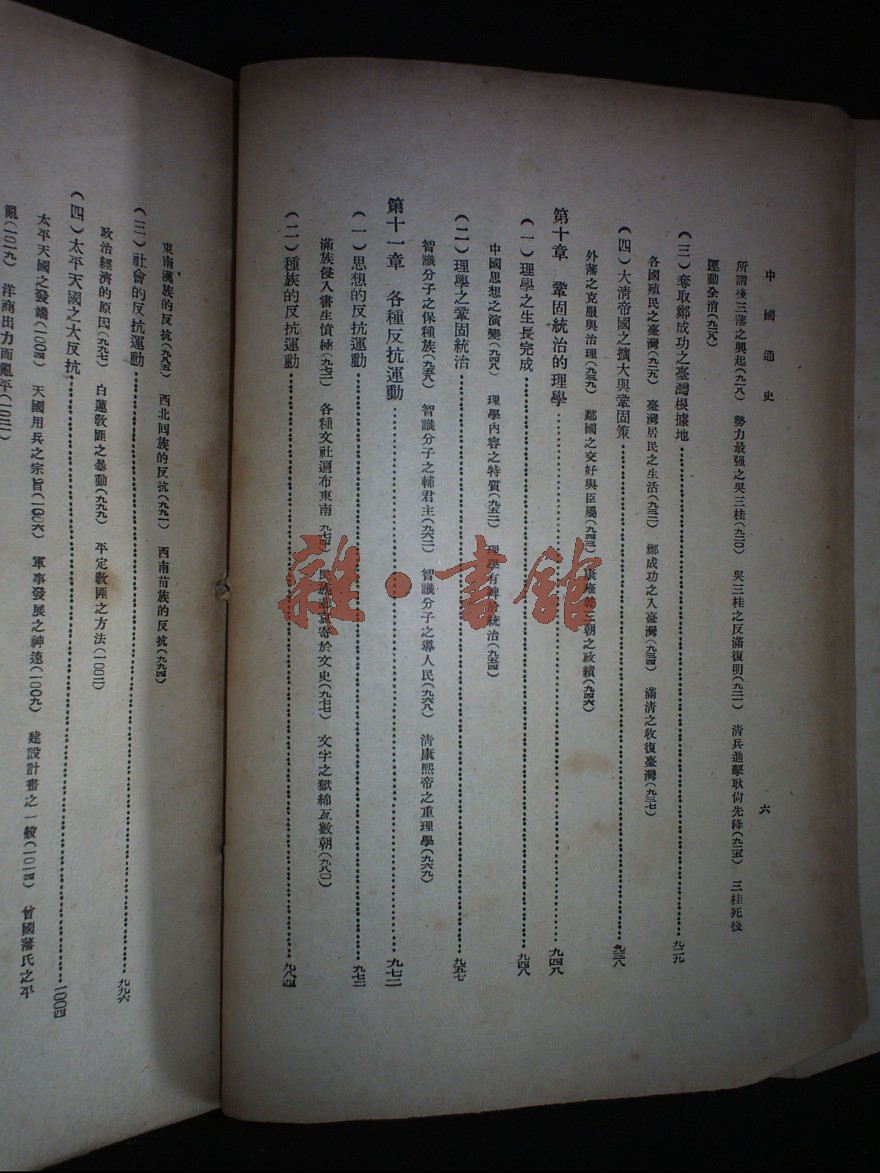 中國通史
六
所謂後三藩之興起(九一八) 勢力最强之吳三桂(九二〇) 吳三桂之反滿復明(九二一) 清兵進擊耿尙先降(九二五) 三桂死後
運動全消(九二六)
(三)奪取鄭成功之臺灣根據地……九二九
各國殖民之臺灣(九二九) 臺灣居民之生活(九三二) 鄭成功之入臺灣(九三四) 滿清之收復臺灣(九三七)
(四)大淸帝國之擴大與鞏固策……九三八
外藩之克服與治理(九三九) 鄰國之交好與臣屬(九四三) 康雍乾三朝之政績(九四六)
第十章 鞏固統治的理學……九四八
(一)理學之生長完成……九四八
中國思想之演變(九四八) 理學內容之特質(九五二) 理學有裨於統治(九五四)
(二)理學之鞏固統治……九五七
智識分子之保種族(九五八) 智識分子之輔君主(九六二) 智識分子之導人民(九六八) 淸康熙帝之重理學(九六九)
第十一章 各種反抗運動……九七二
(一)思想的反抗運動……九七二
滿族侵入書生憤極(九七二) 各種文社遍布東南(九七四) 民族悲哀寄於文史(九七七) 文字之獄綿亙數朝(九八〇)
(二)種族的反抗運動……九八四
東南漢族的反抗(九八五) 西北回族的反抗(九九一) 西南苗族的反抗(九九四)
(三)社會的反抗運動……九九六
政治經濟的原因(九九七) 白蓮敎匪之暴動(九九九) 平定敎匪之方法(一〇〇二)
(四)太平天國之大反抗……一〇〇四
太平天國之發端(一〇〇四) 天國用兵之宗旨(一〇〇六) 軍事發展之神速(一〇〇九) 建設計畫之一般(一〇一四) 曾國藩氏之平
亂(一〇一九) 洋商出力而亂平(一〇二二
雜·書館